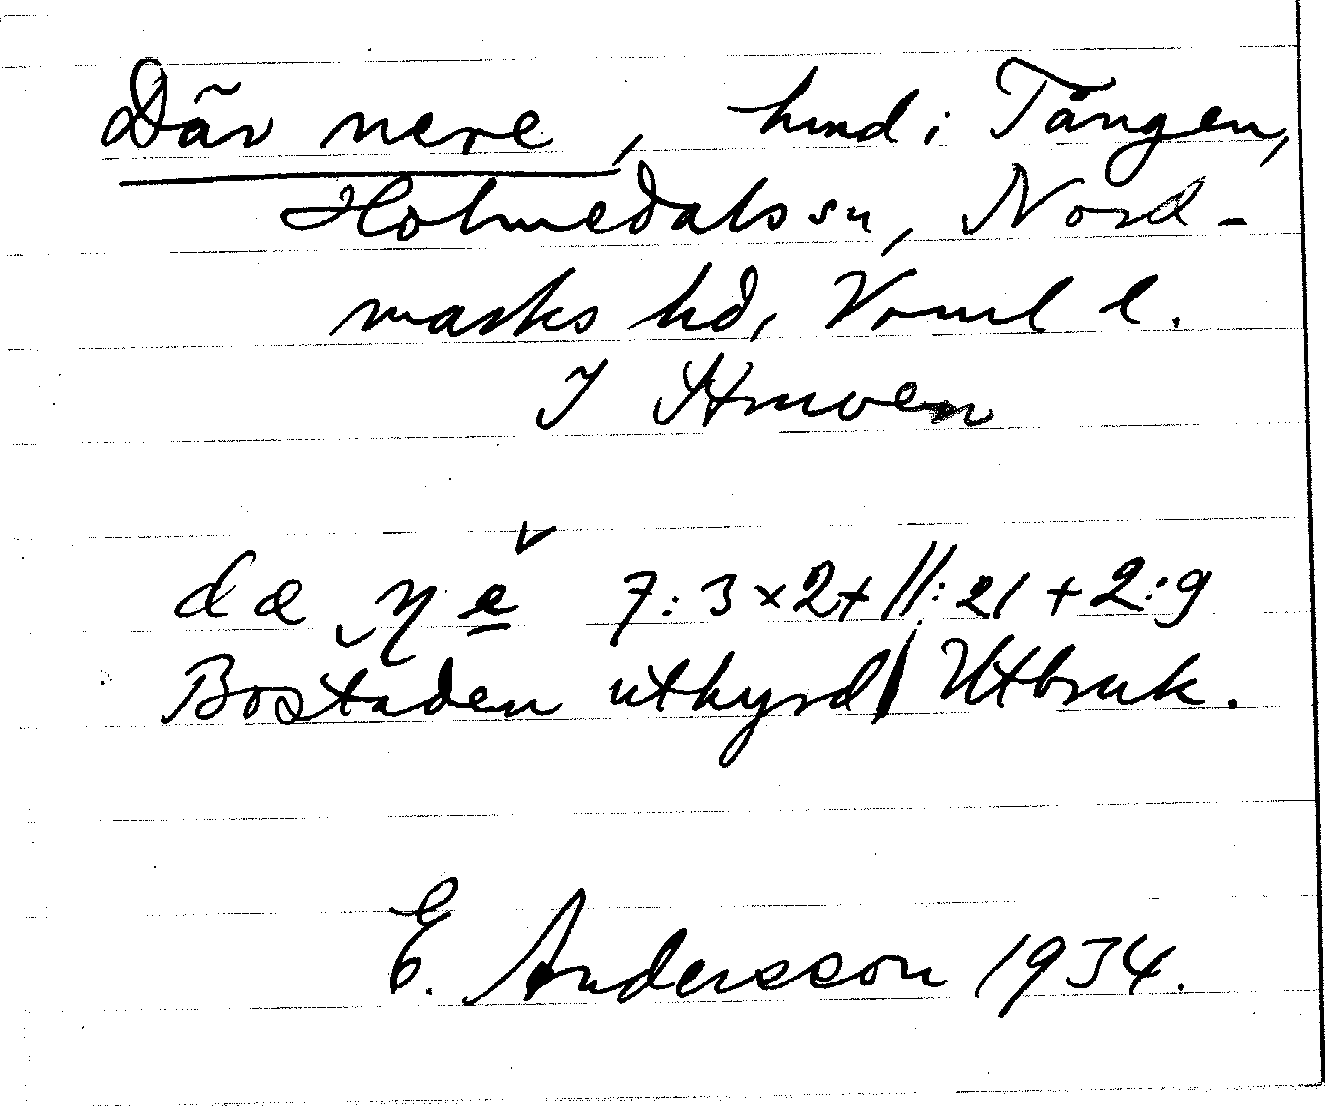 Där nere, hmd i Tången,
Holmedals sn, Nord-
marks hd, Vrml l.
I Strwen
dæ ne 7:3×2+11:21+2:9
Bostaden uthyrd. Utbruk.
E. Andersson 1934.